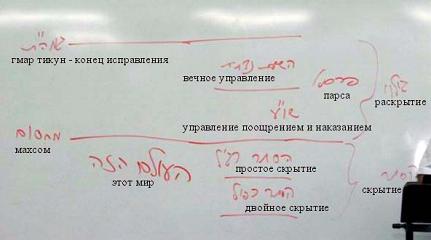 гмар тикун - конец исправления
вечное управление
парса
גילוי
раскрытие
שו"ע
управление поощрением и наказанием
מחסום
махсом
העולם הזה
этот мир
הסתר רגיל
простое скрытие
הסתר
скрытие
הסתר כפול
двойное скрытие